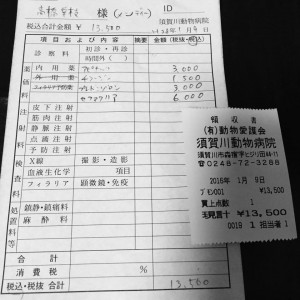 様 (ノンキー) ID
税込合計金額 ¥ 13,500
須賀川動物病院
28年1月9日
項目および内容 摘要 金額(税抜・税込)
診察料 初診・再診
時間外( )
薬価料
内用薬 3,000
外用薬 1,500
フィラリア予防薬 3,000
6,000
注射料
皮下注射
筋肉注射
静脈注射
点滴注射
予防注射
検査料
X線 撮影・造影
血液生化学 項目
フィラリア 顕微鏡・免疫
処置料等
鎮静・鎮痛料
麻酔料
合計
消費税 %
税込・税抜 合計 13,500
領収書
(有)動物愛護会
須賀川動物病院
須賀川市森宿字ヒジリ田44-11
☎0248-72-3268
2016年 1月 9日
ﾌﾟﾓ001 ¥13,500
買上点数 1
現計 ¥13,500
0019 1 担当者1